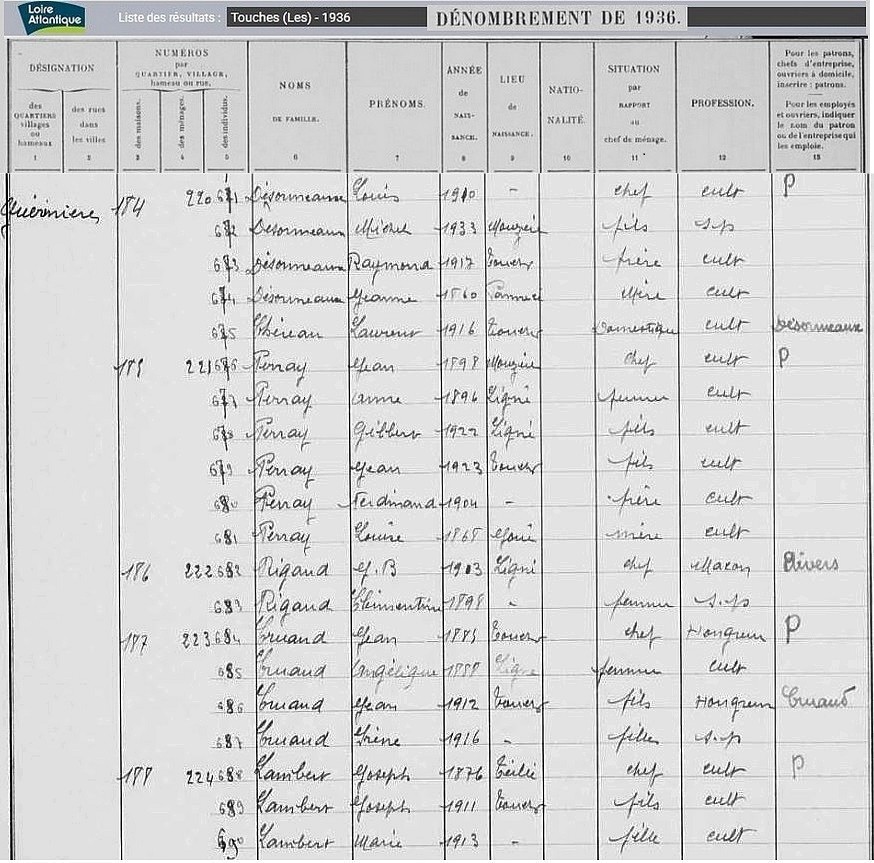 Loire Atlantique
Liste des résultats : Touches (Les) - 1936
DÉNOMBREMENT DE 1936.
DÉSIGNATION
des QUARTIERS villages ou hameaux
1
des rues dans les villes
2
NUMÉROS par QUARTIER, VILLAGE, hameau ou rue.
des maisons.
3
des ménages.
4
des individus.
5
NOMS DE FAMILLE.
6
PRÉNOMS.
7
ANNÉE de NAISSANCE.
8
LIEU de NAISSANCE.
9
NATIONALITÉ.
10
SITUATION par RAPPORT au chef de ménage.
11
PROFESSION.
12
Pour les patrons, chefs d'entreprise, ouvriers à domicile, inscrire : patrons.
Pour les employés et ouvriers, indiquer le nom du patron ou de l'entreprise qui les emploie.
13
184 220 671 Désormeaux Louis 1910 - chef cult P
672 Desormeaux Michel 1933 Mouzeil fils s.p
673 Désormeaux Raymond 1917 Touches frère cult
674 Désormeaux Jeanne Mère cult
675 Laurent 1916 Touches Domestique cult Désormeaux
185 221 676 Perray Jean 1898 Mouzeil chef cult P
677 Perray Anne 1896 Ligné femme cult
678 Perray Gilbert 1922 Ligné fils cult
679 Perray Jean 1923 Touches fils cult
680 Perray Ferdinand 1904 - frère cult
681 Perray Louise mère cult
186 222 682 Rigaud J.B 1903 Ligné chef Maçon Divers
683 Rigaud Clémentine 1898 - femme s.p
187 223 684 Jean Touches chef Hongreur P
685 Angélique Ligné femme cult
686 Jean 1912 Touches fils Hongreur
687 Irène 1916 - fille s.p
188 224 688 Lambert Joseph 1876 Teillé chef cult P
689 Lambert Joseph 1911 Touches fils cult
690 Lambert Marie 1913 - fille cult